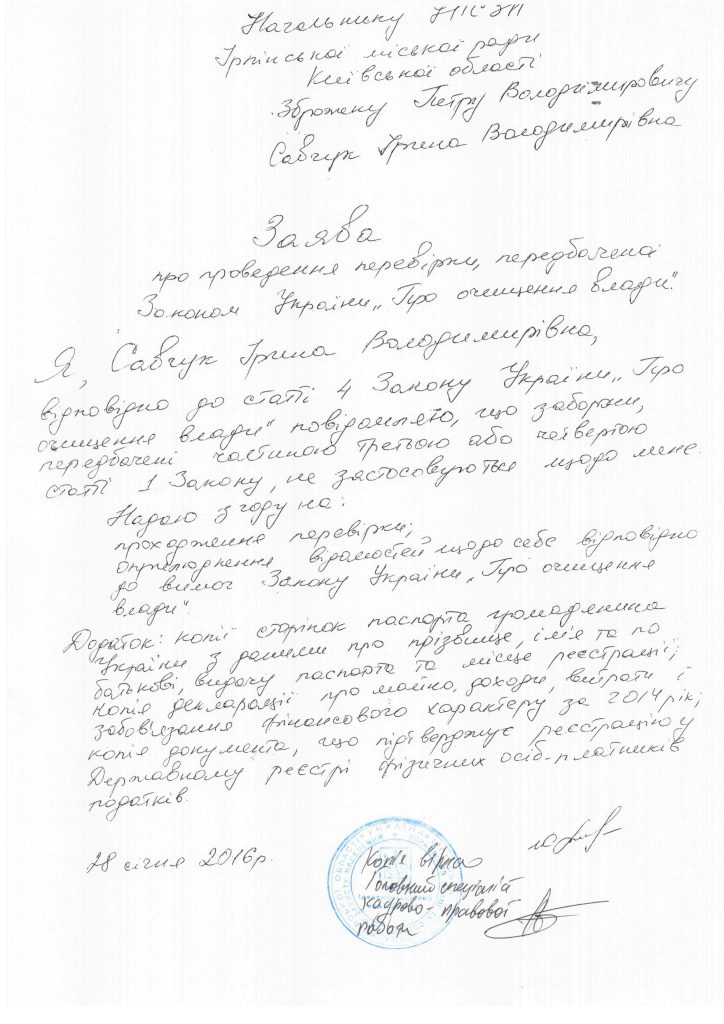 Начальнику УПСЗН
Ірпінської міської ради
Київської області
Зброжеку Петру Володимировичу
Савчук Ірина Володимирівна
Заява
про проведення перевірки, передбаченої
Законом України „Про очищення влади".
Я, Савчук Ірина Володимирівна,
відповідно до статті 4 Закону України „Про
очищення влади" повідомляю, що заборони,
передбачені частиною третьою або четвертою
статті 1 Закону, не застосовуються щодо мене.
Надаю згоду на:
проходження перевірки;
оприлюднення відомостей щодо себе відповідно
до вимог Закону України „Про очищення
влади".
Додаток: копії сторінок паспорта громадянина
України з даними про прізвище, ім'я та по
батькові, видачу паспорта та місце реєстрації;
копія декларації про майно, доходи, витрати і
зобов'язання фінансового характеру за 2014 рік;
копія документа, що підтверджує реєстрацію у
Державному реєстрі фізичних осіб-платників
податків.
28 січня 2016р.
Копія вірна
Головний спеціаліст
кадрово-правової
роботи